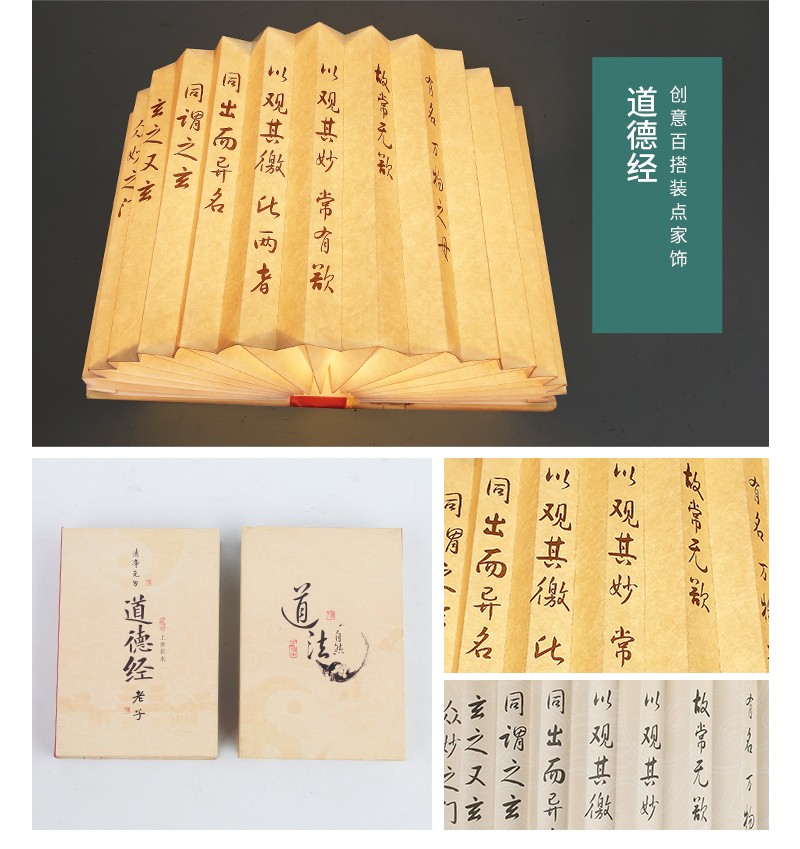 道德经
创意百搭装点家饰
有名万物之母
故常无欲
以观其妙常有欲
以观其徼此两者
同出而异名
同谓之玄
玄之又玄
众妙之门
清净无为
道德经
上善若水
老子
道法
自然
有名万物
故常无欲
以观其妙常
以观其徼此
同出而异名
同谓之
有名万物
故常无欲
以观其妙
以观其徼
同出而异
同谓之玄
玄之又玄
众妙之门